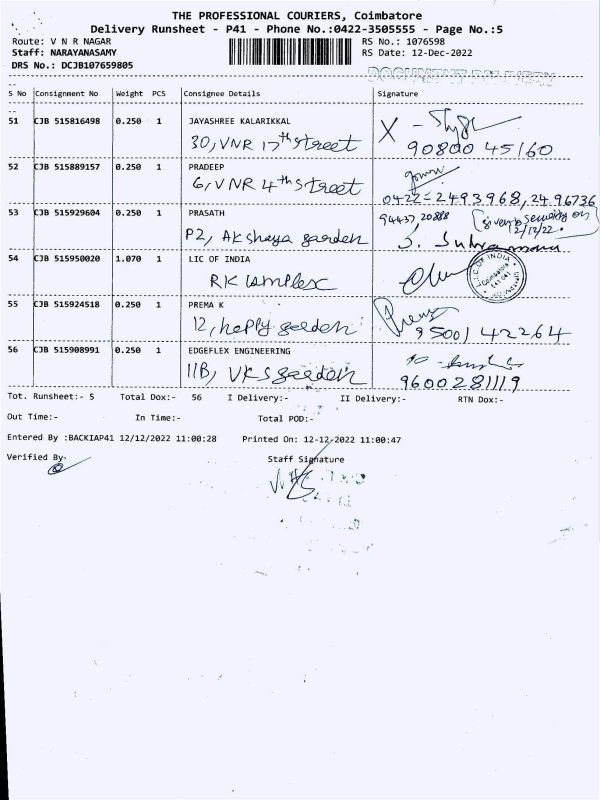 THE PROFESSIONAL COURIERS, Coimbatore
Delivery Runsheet - P41 - Phone No.:0422-3505555 - Page No.:5
Route: V N R NAGAR RS No.: 1076598
Staff: NARAYANASAMY RS Date: 12-Dec-2022
DRS No.: DCJB107659805
DOCUMENT DELIVERY
S No Consignment No Weight PCS Consignee Details Signature
51 CJB 515816498 0.250 1 JAYASHREE KALARIKKAL
30, VNR 17th street X 90800 45160
52 CJB 515889157 0.250 1 PRADEEP
6, VNR 4th street 0422-2493968, 2496736
53 CJB 515929604 0.250 1 PRASATH 94437, 20888 given to security on 12/12/22.
P2, Akshaya garden S.
54 CJB 515950020 1.070 1 LIC OF INDIA
RK complex
L.I.C OF INDIA Coimbatore 641 041
55 CJB 515924518 0.250 1 PREMA K Prema
12, happy garden 95001 42264
56 CJB 515908991 0.250 1 EDGEFLEX ENGINEERING
11B, VKS garden 9600281119
Tot. Runsheet:- 5 Total Dox:- 56 I Delivery:- II Delivery:- RTN Dox:-
Out Time:- In Time:- Total POD:-
Entered By :BACKIAP41 12/12/2022 11:00:28 Printed On: 12-12-2022 11:00:47
Verified By- Staff Signature